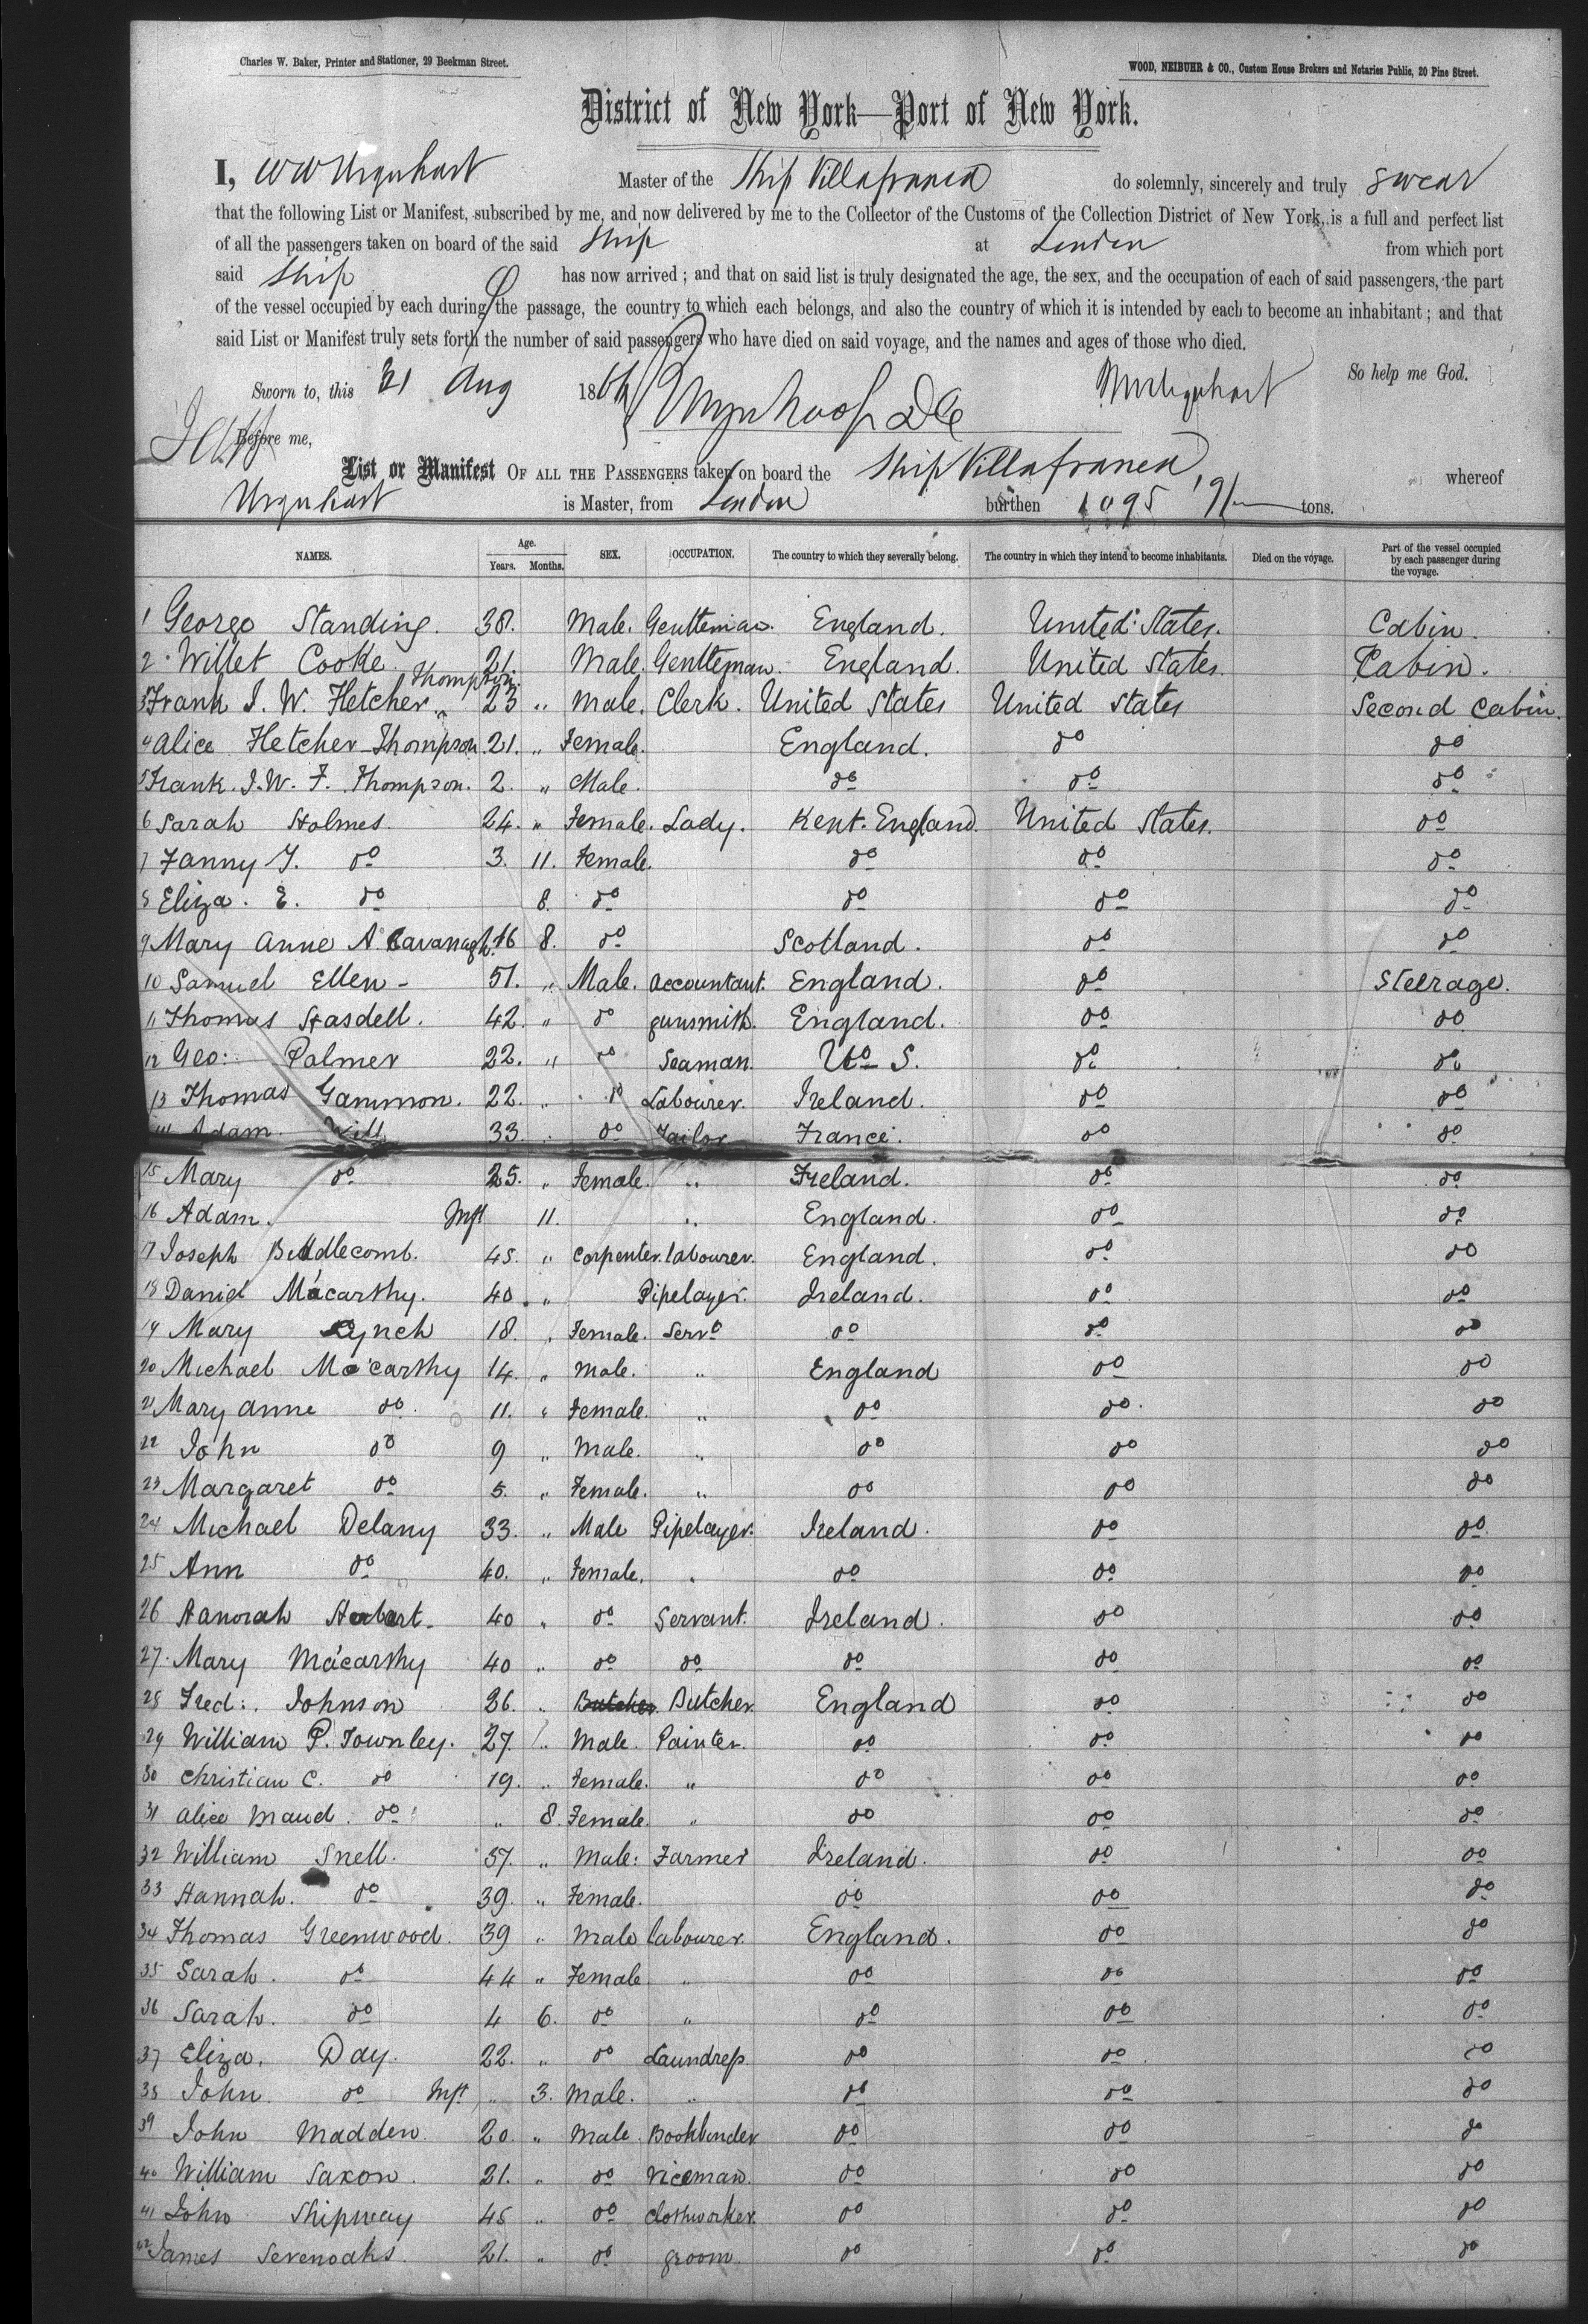 Charles W. Baker, Printer and Stationer, 29 Beekman Street.
WOOD, NEIBUHR & CO., Custom House Brokers and Notaries Public, 20 Pine Street.
District of New York—Port of New York.
I, W W Urquhart Master of the Ship Villafranca do solemnly, sincerely and truly swear
that the following List or Manifest, subscribed by me, and now delivered by me to the Collector of the Customs of the Collection District of New York, is a full and perfect list
of all the passengers taken on board of the said Ship at London from which port
said Ship has now arrived; and that on said list is truly designated the age, the sex, and the occupation of each of said passengers, the part
of the vessel occupied by each during the passage, the country to which each belongs, and also the country of which it is intended by each to become an inhabitant; and that
said List or Manifest truly sets forth the number of said passengers who have died on said voyage, and the names and ages of those who died.
So help me God.
Sworn to, this 31 Aug 186 W W Urquhart
Before me,
List or Manifest OF ALL THE PASSENGERS taken on board the Ship Villafranca whereof
Urquhart is Master, from London burthen 1095 tons.
NAMES. Age. Years. Months. SEX. OCCUPATION. The country to which they severally belong. The country in which they intend to become inhabitants. Died on the voyage. Part of the vessel occupied by each passenger during the voyage.
1 George Standing. 38. Male. Gentleman. England. United States. Cabin.
2 Willet Cooke. 21. Male. Gentleman. England. United States Cabin.
Thompson.
3 Frank I. W. Fletcher. 23 " Male. Clerk. United States United States Second Cabin.
4 Alice Fletcher Thompson 21. " Female. England. do do
5 Frank. I. W. F. Thompson. 2. " Male. do do do
6 Sarah Holmes. 24. " Female. Lady. Kent. England. United States. do
7 Fanny J. do 3. 11. Female. do do do
8 Eliza. E. do 8. do do do do
9 Mary Anne A Cavanagh. 16 8. do Scotland. do do
10 Samuel Ellen - 51. " Male. accountant. England. do Steerage.
11 Thomas Stasdell. 42. " do gunsmith. England. do do
12 Geo: Palmer 22. " do Seaman. U S. do do
13 Thomas Gammon. 22. " do Labourer. Ireland. do do
14 Adam. Will 33. " do Tailor France. do do
15 Mary do 25. " Female. " Ireland. do do
16 Adam. Inft 11. " England. do do
17 Joseph Biddlecomb. 45. " Carpenter. labourer. England. do do
18 Daniel Macarthy. 40. " Pipelayer. Ireland. do do
19 Mary Lynch 18. " Female. Servt do do do
20 Michael Macarthy 14. " Male. " England do do
21 Mary Anne do 11. " Female. " do do do
22 John do 9 " Male. " do do do
23 Margaret do 5. " Female. " do do do
24 Michael Delany 33. " Male Pipelayer. Ireland. do do
25 Ann do 40. " Female. " do do do
26 Hanorah 40 " do Servant. Ireland. do do
27. Mary Macarthy 40 " do do do do do
28 Fred: Johnson 26. " Butcher. Butcher. England do do
29 William P. Townley. 27. " Male. Painter. do do do
30 Christian C. do 19. " Female. " do do do
31 Alice Maud. do " 8. Female. " do do do
32 William Snell. 57. " Male: Farmer Ireland. do do
33 Hannah. do 39. " Female. do do do
34 Thomas Greenwood. 39 " Male labourer. England. do do
35 Sarah. do 44 " Female " do do do
36 Sarah. do 4 6. do " do do do
37 Eliza. Day. 22. " do Laundress. do do do
38 John. do Inft " 3. Male. " do do do
39 John Madden. 20. " Male. Bookbinder. do do do
40 William Saxon. 21. " do Viceman. do do do
41 John Shipway 45 " do Clothworker. do do do
42 James Sevenoaks. 21. " do groom. do do do